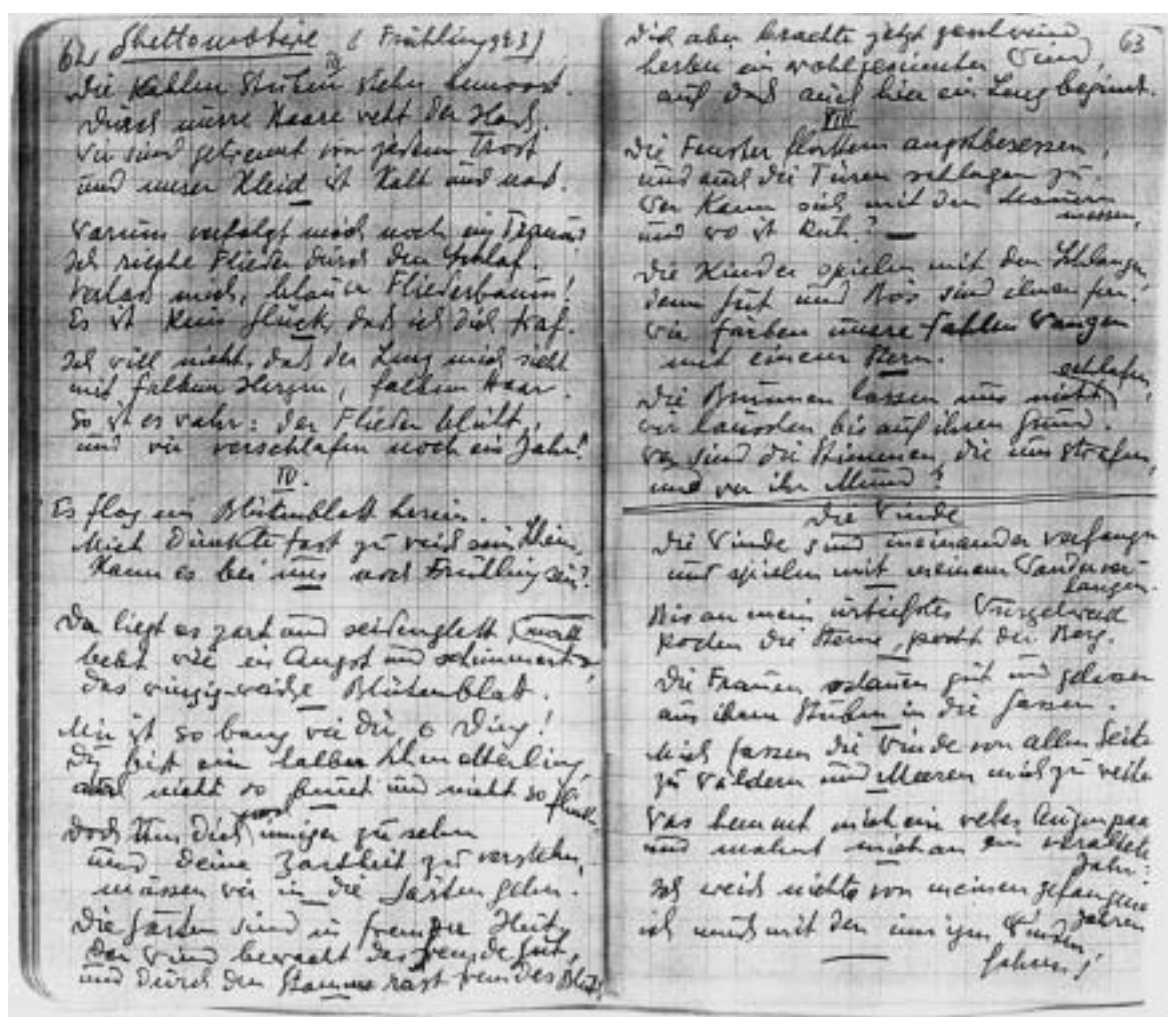 62
Ghettomotive (Frühling 43)
III
Die kahlen Stuben stehn bemoost.
Durch unsre Haare weht der Hass.
Wir sind getrennt von jedem Trost
und unser Kleid ist kalt und nass.
Warum verfolgt mich noch ein Traum?
Ich rieche Flieder durch den Schlaf.
Verlass mich, blauer Fliederbaum!
Es ist kein Glück, dass ich dich traf.
Ich will nicht, dass der Lenz mich sieht
mit falbem Herzen, falbem Haar.
So ist es wahr: der Flieder blüht,
und wir verschlafen noch ein Jahr!
IV.
Es flog ein Blütenblatt herein.
Mich dünkte fast zu weich sein Schein,
Kann es bei uns noch Frühling sein?
Da liegt es zart und seidenglatt
bebt wie in Angst und schimmert matt,
das winzig-weiche Blütenblatt.
Mir ist so bang wie dir, o Ding!
Du bist ein halber Schmetterling,
nicht so bunt und nicht so flink.
Doch um dich inniger zu sehn
und deine Zartheit zu verstehn,
müssen wir in die Gärten gehn.
Die Gärten sind in fremder Hut,
der Wind bewacht das fremde Gut,
und durch den Stamm rast fremdes Blut.
63
Dich aber brachte jetzt geschwind
herein ein wohlgesinnter Wind,
auf dass auch hier ein Lenz beginnt.
VIII
Die Fenster flattern angstbesessen,
und auch die Türen schlagen zu.
Wer kann sich mit den Mauern messen,
und wo ist Ruh?
Die Kinder spielen mit den Schlangen,
denn Gut und Bös sind ihnen fern.
Wir färben unsere fahlen Wangen
mit einem Stern.
Die Brunnen lassen uns nicht schlafen,
wir lauschten bis auf ihren Grund.
Wer sind die Stimmen, die uns strafen,
und wer ihr Mund?
Die Winde
Die Winde sind ineinander verfangen
und spielen mit meinem Wanderverlangen.
Bis an mein urtiefstes Wurzelwerk
die Sterne, pocht der Berg.
Die Frauen schauen gut und gelassen
aus ihren Stuben in die Gassen.
Mich fassen die Winde von allen Seiten
zu Wäldern und Meeren mich zu
Was hemmt mich ein Augenpaar
und mahnt mich an ein Jahr.
Ich weiss nichts von meinen gefangenen Jahren
ich muss mit den Winden fahren!